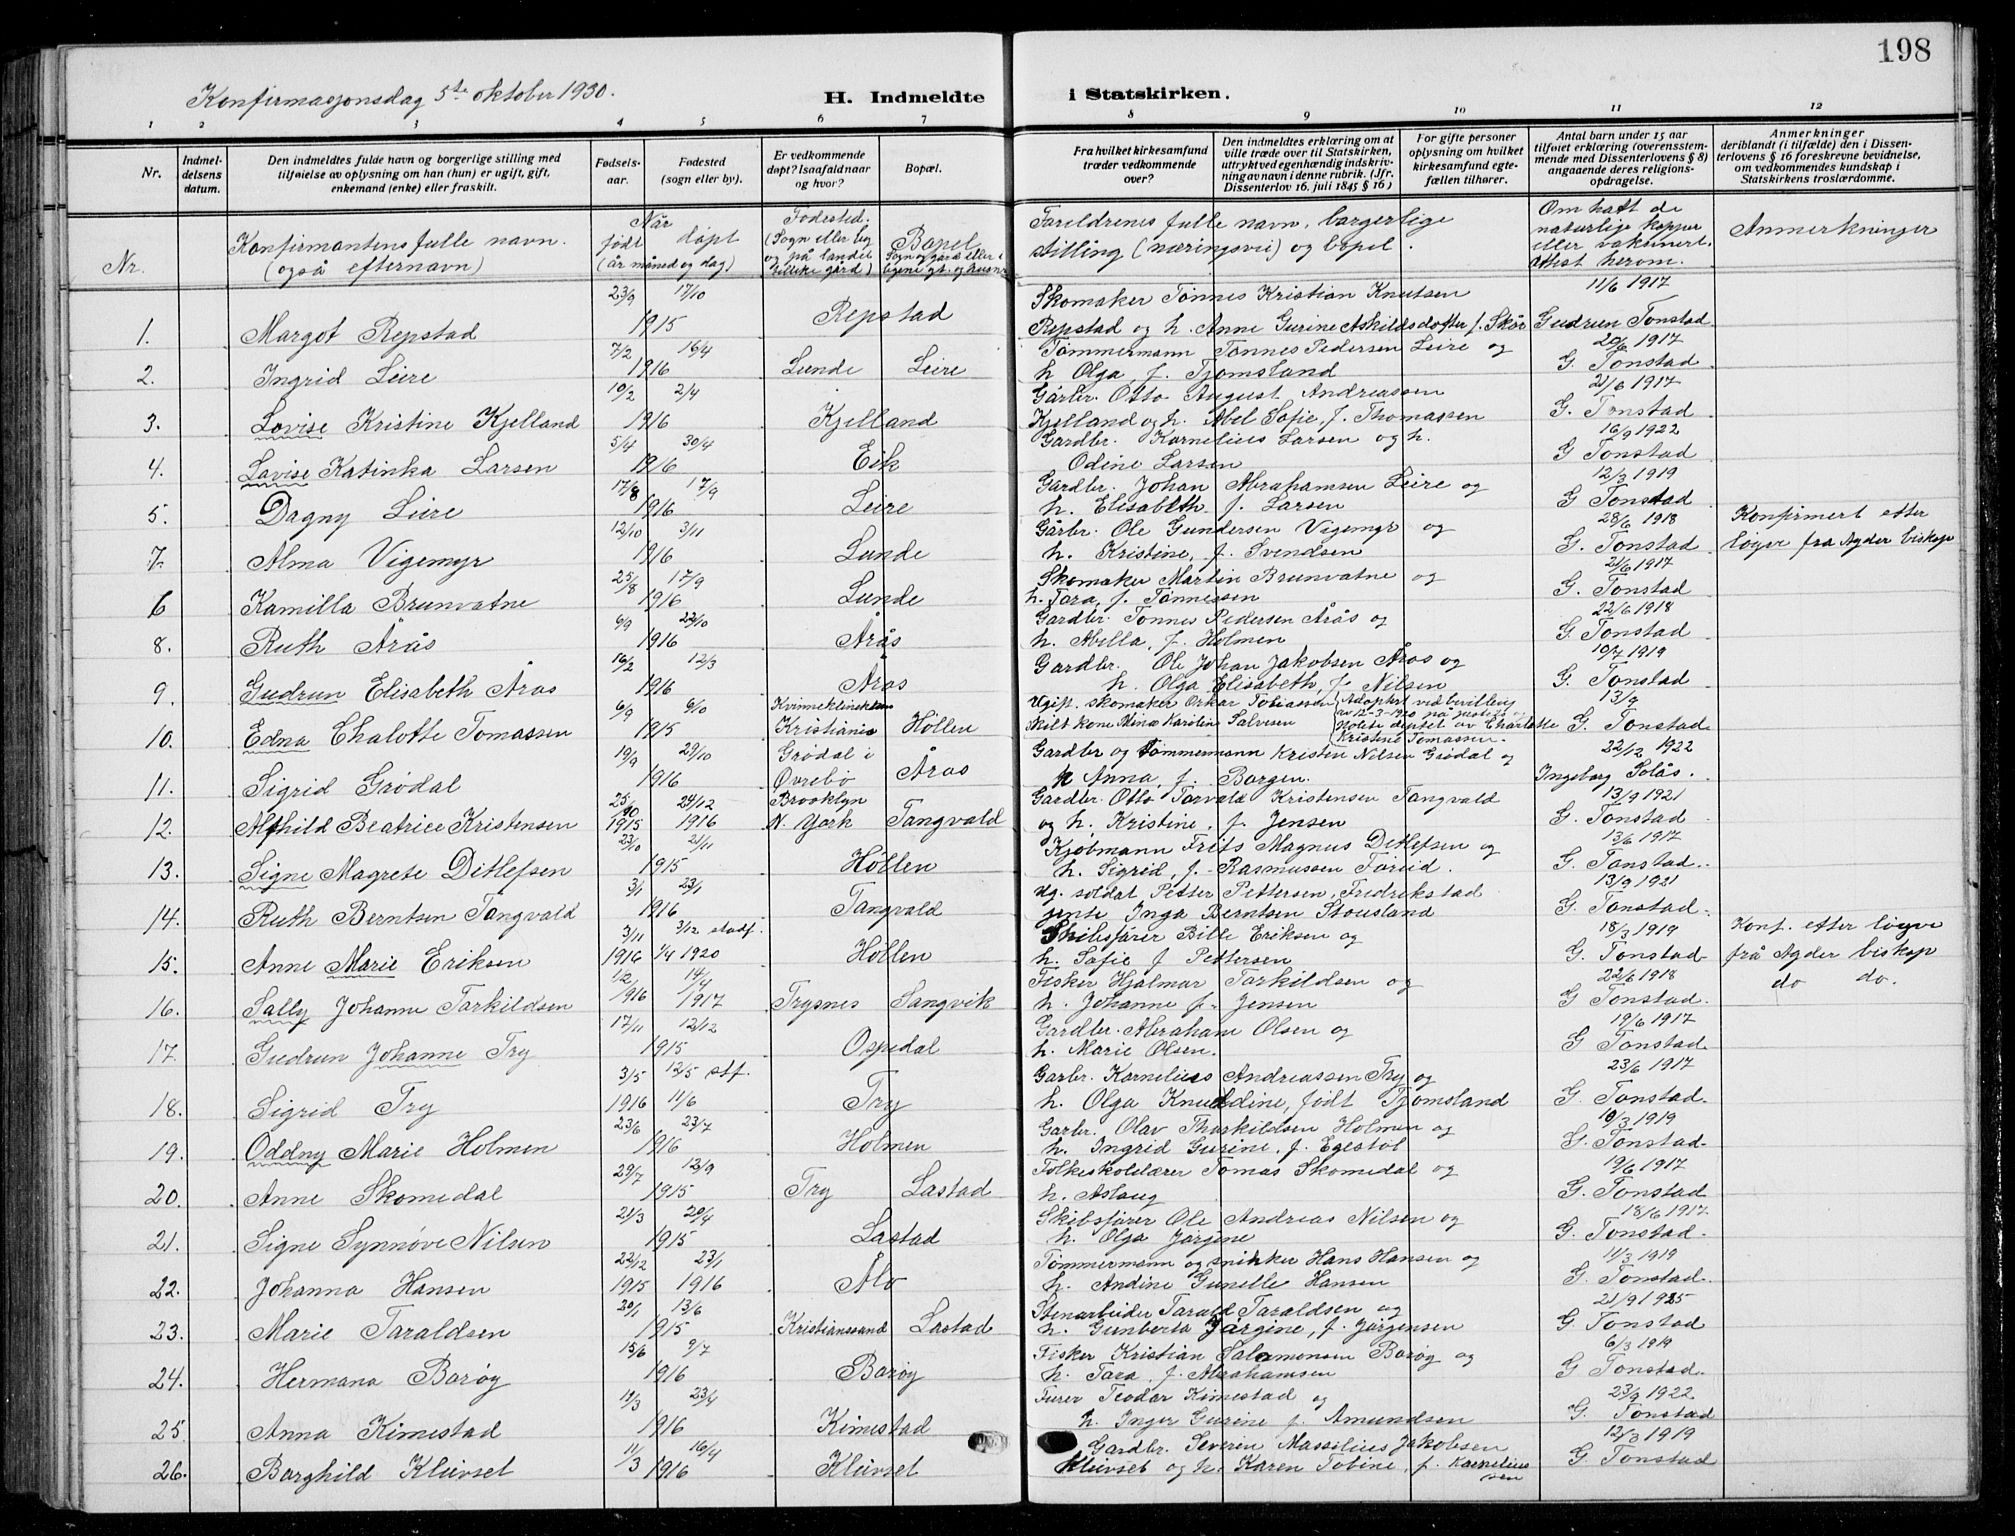 198
Konfirmasjonsdag 5te oktober 1930.
H. Indmeldte i Statskirken.
1 2 3 4 5 6 7 8 9 10 11 12
Nr.
Indmeldelsens datum.
Den indmeldtes fulde navn og borgerlige stilling med tilføielse av oplysning om han (hun) er ugift, gift, enkemand (enke) eller fraskilt.
Fødselsaar.
Fødested (sogn eller by).
Er vedkommende døpt? Isaafald naar og hvor?
Bopæl.
Fra hvilket kirkesamfund træder vedkommende over?
Den indmeldtes erklæring om at ville træde over til Statskirken, uttrykt ved egenhændig indskrivning av navn i denne rubrik. (Jfr. Dissenterlov 16. juli 1845 § 16)
For gifte personer oplysning om hvilket kirkesamfund egtefællen tilhører.
Antal barn under 15 aar tilføiet erklæring (overensstemmende med Dissenterlovens § 8) angaaende deres religionsopdragelse.
Anmerkninger deriblandt (i tilfælde) den i Dissenterlovens § 16 foreskrevne bevidnelse, om vedkommendes kundskap i Statskirkens troslærdomme.
Nr.
Konfirmantens fulle navn. (også efternavn)
Når født døpt (år måned og dag)
Fødested. (Sogn eller by og på landet tillike gård)
Bopel Sogn og gård eller i byene gt. og husnr
Foreldrenes fulle navn, borgerlige stilling (næringsvei) og bopel.
Om hatt de naturlige kopper eller vaksinert. Attest herom.
Anmerkninger
1. Margot Repstad 23/9 17/10 1915 Repstad Skomaker Tønnes Kristian Knutsen Repstad og h. Anne Gurine Askildsdotter f. Skår 11/6 1917 Gudrun Tonstad
2. Ingrid Leire 7/2 16/4 1916 Lunde Leire Tømmermann Tønnes Pedersen Leire og h Olga f. Tjomsland 20/6 1917 G. Tonstad
3. Lovise Kristine Kjelland 10/2 2/4 1916 Kjelland Gårbr. Otto August Andreassen Kjelland og h. Abel Sofie, f. Thomassen 21/6 1917 G. Tonstad
4. Lovise Katinka Larsen 5/4 30/4 1916 Eik Gardbr. Kornelius Larsen og h. Odine Larsen 16/9 1922 G Tonstad
5. Dagny Leire 17/8 17/9 1916 Leire Gardbr. Johan Abrahamsen Leire og h. Elisabeth f. Larsen 12/3 1919 G Tonstad
7. Alma Vigemyr 12/10 3/11 1916 Lunde Gårbr. Ole Gundersen Vigemyr og h. Kristine, f. Svendsen 28/6 1918 G. Tonstad Konfirmert etter løyve fra Agder biskop
6 Kamilla Brunvatne 25/8 17/9 1916 Lunde Skomaker Martin Brunvatne og h. Tora, f. Tønnessen 21/6 1917 G. Tonstad
8. Ruth Årås 6/9 22/10 1916 Årås Gardbr. Tønnes Pedersen Årås og h. Abella, f. Holmen 22/6 1918 G. Tonstad
9. Gudrun Elisabeth Åras 16/2 12/3 1916 Åras Gardbr. Ole Johan Jakobsen Åros og h. Olga Elisabeth, f. Nilsen 10/7 1919 G. Tonstad
10. Edna Chalotte Tomassen 6/9 9/10 1915 Kvinneklinikken Kristiania Höllen Ugift skomaker Oskar Tobiassen skilt kone Alma Karoline Salvesen Adoptert ved bevilling av 12-3-1920 Charlotte Kristine Tomassen. 13/9 G. Tonstad
11. Sigrid Grødal 19/9 29/10 1916 Grødal i Øvrebö Åras Gardbr og Tömmermann Kristen Nilsen Grødal og h Anna, f. Borgen. 22/12 1922 Ingeborg Solås.
12. Alfhild Beatrice Kristensen 25/10 1915 24/12 1916 Brooklyn N. York Tangvald Gardbr. Otto Torvald Kristensen Tangvald og h. Kristine, f. Jensen 13/9 1921 G. Tonstad
13. Signe Magrete Ditlefsen 23/10 21/11 1915 Höllen Kjøbmann Frits Magnus Ditlefsen og h. Sigrid, f. Rasmussen Føreid. 13/6 1917 G. Tonstad
14. Ruth Berntsen Tangvald 3/1 23/1 1916 Tangvald Ug. soldat Petter Pettersen, Fredrikstad jente Inga Berntsen Stousland 13/9 1921 G. Tonstad
15. Anne Marie Eriksen 3/11 1916 3/12 stadf. 1/4 1920 Höllen Skibsfører Bille Eriksen og h. Sofie f. Pettersen 18/3 1919 G. Tonstad Konf. etter løyve frå Agder biskop
16. Sally Johanne Torkildsen 1/12 1916 14/4 1917 Trysnes Langvik Fisker Hjalmar Torkildsen og h. Johanne f. Jensen 22/6 1918 G Tonstad do do.
17. Gudrun Johanne Try 17/11 12/12 1915 Ospedal Gardbr. Abraham Olsen og h. Marie Olsen. 19/6 1917 G Tonstad
18. Sigrid Try 3/5 1916 12/5 stf. 11/6 Try Garbr. Kornelius Andreassen Try og h. Olga Knuddine, født Tjomsland 23/6 1917 G. Tonstad
19. Oddny Marie Holmen 23/6 23/7 1916 Holmen Garbr. Olav Thorkildsen Holmen og h. Ingrid Gurine, f. Egestöl 10/3 1919 G. Tonstad
20. Anne Skomedal 29/7 12/9 1915 Try Lastad Folkeskolelærer Tomas Skomedal og h. Aslaug 19/6 1917 G. Tonstad
21. Signe Synnøve Nilsen 21/3 20/4 1915 Lastad Skibsfører Ole Andreas Nilsen og h. Olga Jörgine 18/6 1917 G. Tonstad
22. Johanna Hansen 22/12 1915 23/1 1916 Ålo Tömmermann og snikker Hans Hansen og h. Andine Gunelle Hansen 11/3 1919 G. Tonstad
23. Marie Taraldsen 20/1 13/6 1915 Kristianssand Lastad Stenarbeider Tarald Taraldsen og h. Gunberta Jörgine, f. Jörgensen 21/9 1925 G. Tonstad
24. Hermana Borøy 15/6 9/7 1916 Borøy Fisker Kristian Salamonsen Borøy og h. Tora, f. Abrahamsen 6/3 1919 G Tonstad
25. Anna Kimestad 11/3 23/4 1916 Kimestad Furer Teodor Kimestad og h. Inger Gurine f. Amundsen 23/9 1922 G. Tonstad
26. Borghild Kleivset 11/3 16/4 1916 Kleivset Gardbr. Severin Massilius Jakobsen Kleivset og h. Karen Tobine, f. Korneliussen 12/3 1919 G Tonstad